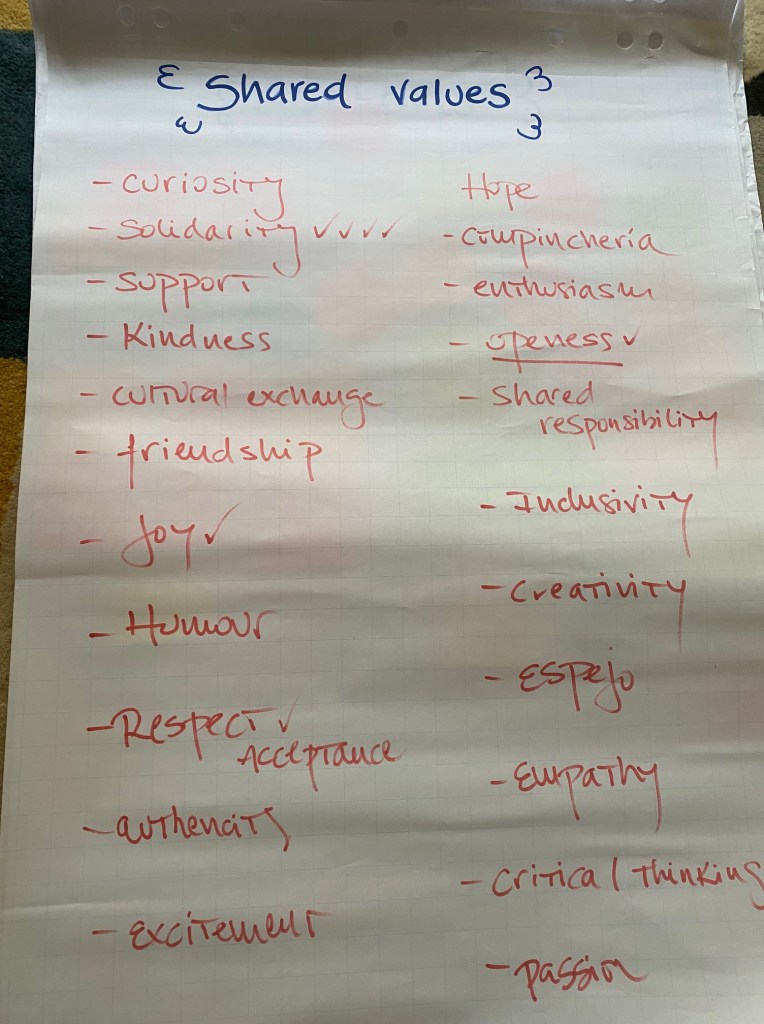 Shared values
- curiosity
- Solidarity ✓✓✓✓
- Support
- Kindness
- cultural exchange
- friendship
- Joy ✓
- Humour
- Respect ✓
Acceptance
- authencity
- Excitement
Hope
- cumpinchería
- enthusiasm
- openess ✓
- Shared
responsibility
- Inclusivity
- Creativity
- Espejo
- Empathy
- Critical Thinking
- passion